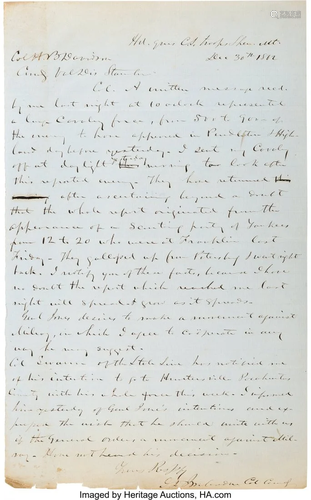 Hd. Qrs C.S. Troops Shen. Mt.
Dec 30th 1862
Col. H. B. Davidson
Comdg Val Dis Staunton
Col. A written message recd.
by me last night at 10 o'clock represented
a large Cavalry force, from 800 to 900 of
the enemy to have appeared in Pendleton & High-
land day before yesterday. I sent my Cavalry
off at daylight yesterday morning to look after
this reported enemy. They have returned
after ascertaining beyond a doubt
that the whole report originated from the
appearance of a Scouting party of Yankees
from 12 to 20 who were at Franklin last
Friday. They galloped up from Petersburg & went right
back. I notify you of these facts, because I have
no doubt the report which reached me last
night will spread & grow as it spreads.
Genl Jones desires to make a movement against
Milroy, in which I agree to cooperate in any
way he may suggest.
Col. of the State Line has notified me
of his intention to go to Huntersville Pocahontas
County with his whole force this week. I informed
him yesterday of Genl Jones's intentions and
the wish that he should unite with us
of the General orders a movement against Mil-
roy. Have not heard his decision.
Your Respy
Col Comdg
Imaged by Heritage Auctions, HA.com